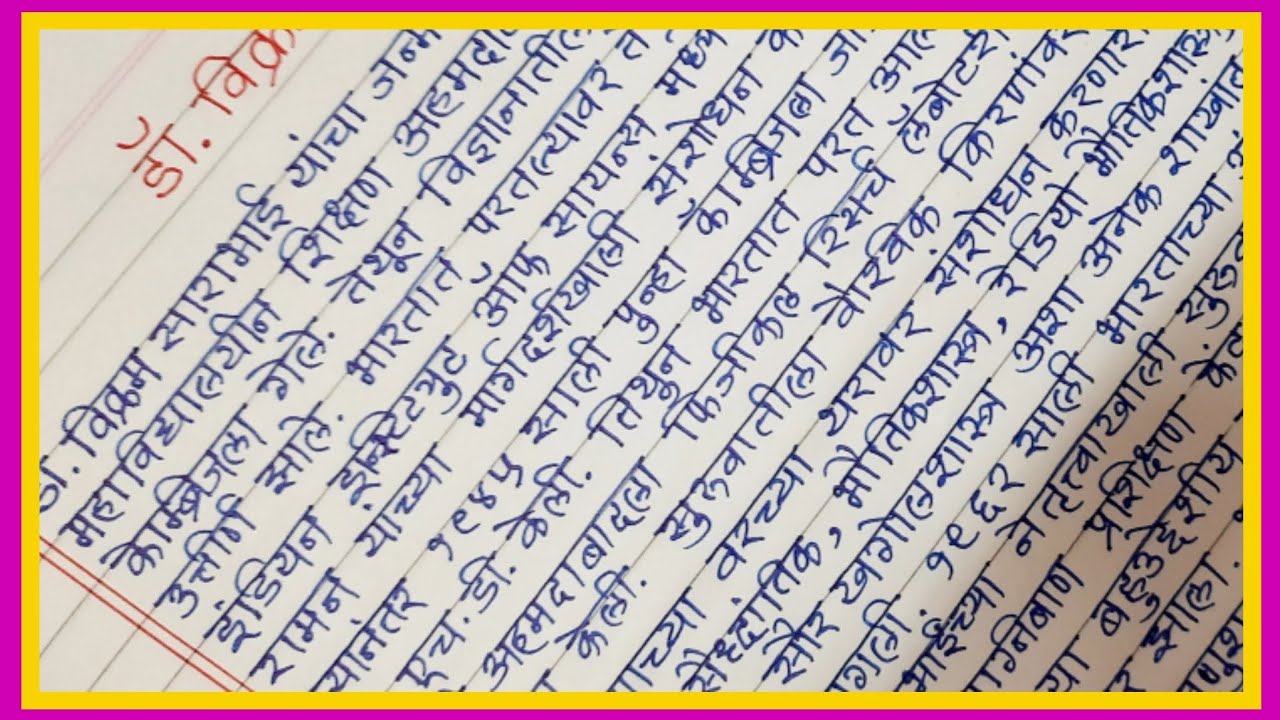 डॉ. विक्र
डॉ. विक्रम साराभाई यांचा जन्म
महाविद्यालयीन शिक्षण अहमदा
केम्ब्रिजला गेले. तेथून विज्ञानातील
उत्तीर्ण झाले. भारतात परतल्यावर त
इंडियन इन्स्टिट्युट ऑफ सायन्स मध्य
रामन यांच्या मार्गदर्शखाली संशोधन क
यानंतर १९४५ साली पुन्हा केंम्ब्रिजला जा
एच.डी. केली. तिथून भारतात परत आल
अहमदाबादला फिजीकल रिसर्च लॅबोटरी
केली. सुरुवातीला वैश्विक किरणांवर
च्या वरच्या थरावर संशोधन करणार
सैध्दांतिक, भौतिकशास्त्र, रेडियो भौतिकशास्त्र
सौर खगोलशास्त्र अशा अनेक शाखांत
गली. १९६२ साली भारताच्या अं
भाईंच्या नेतृत्वाखाली सुरु
ग्निबाण प्रशिक्षण कें
या बहुउद्देशीय केंद
झाला.